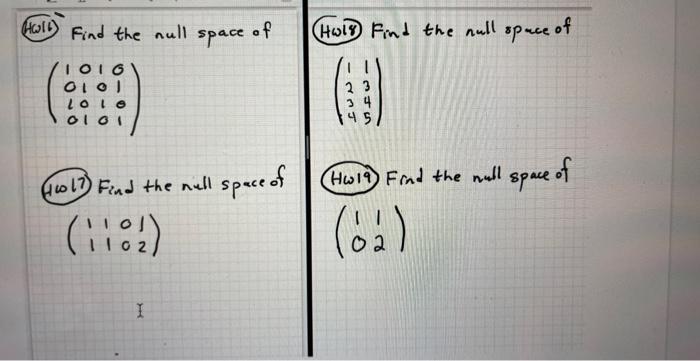 HW16 Find the null space of
1 0 1 0
0 1 0 1
1 0 1 0
0 1 0 1
HW17 Find the null space of
1 1 0 1
1 1 0 2
HW18 Find the null space of
1 1
2 3
3 4
4 5
HW19 Find the null space of
1 1
0 2